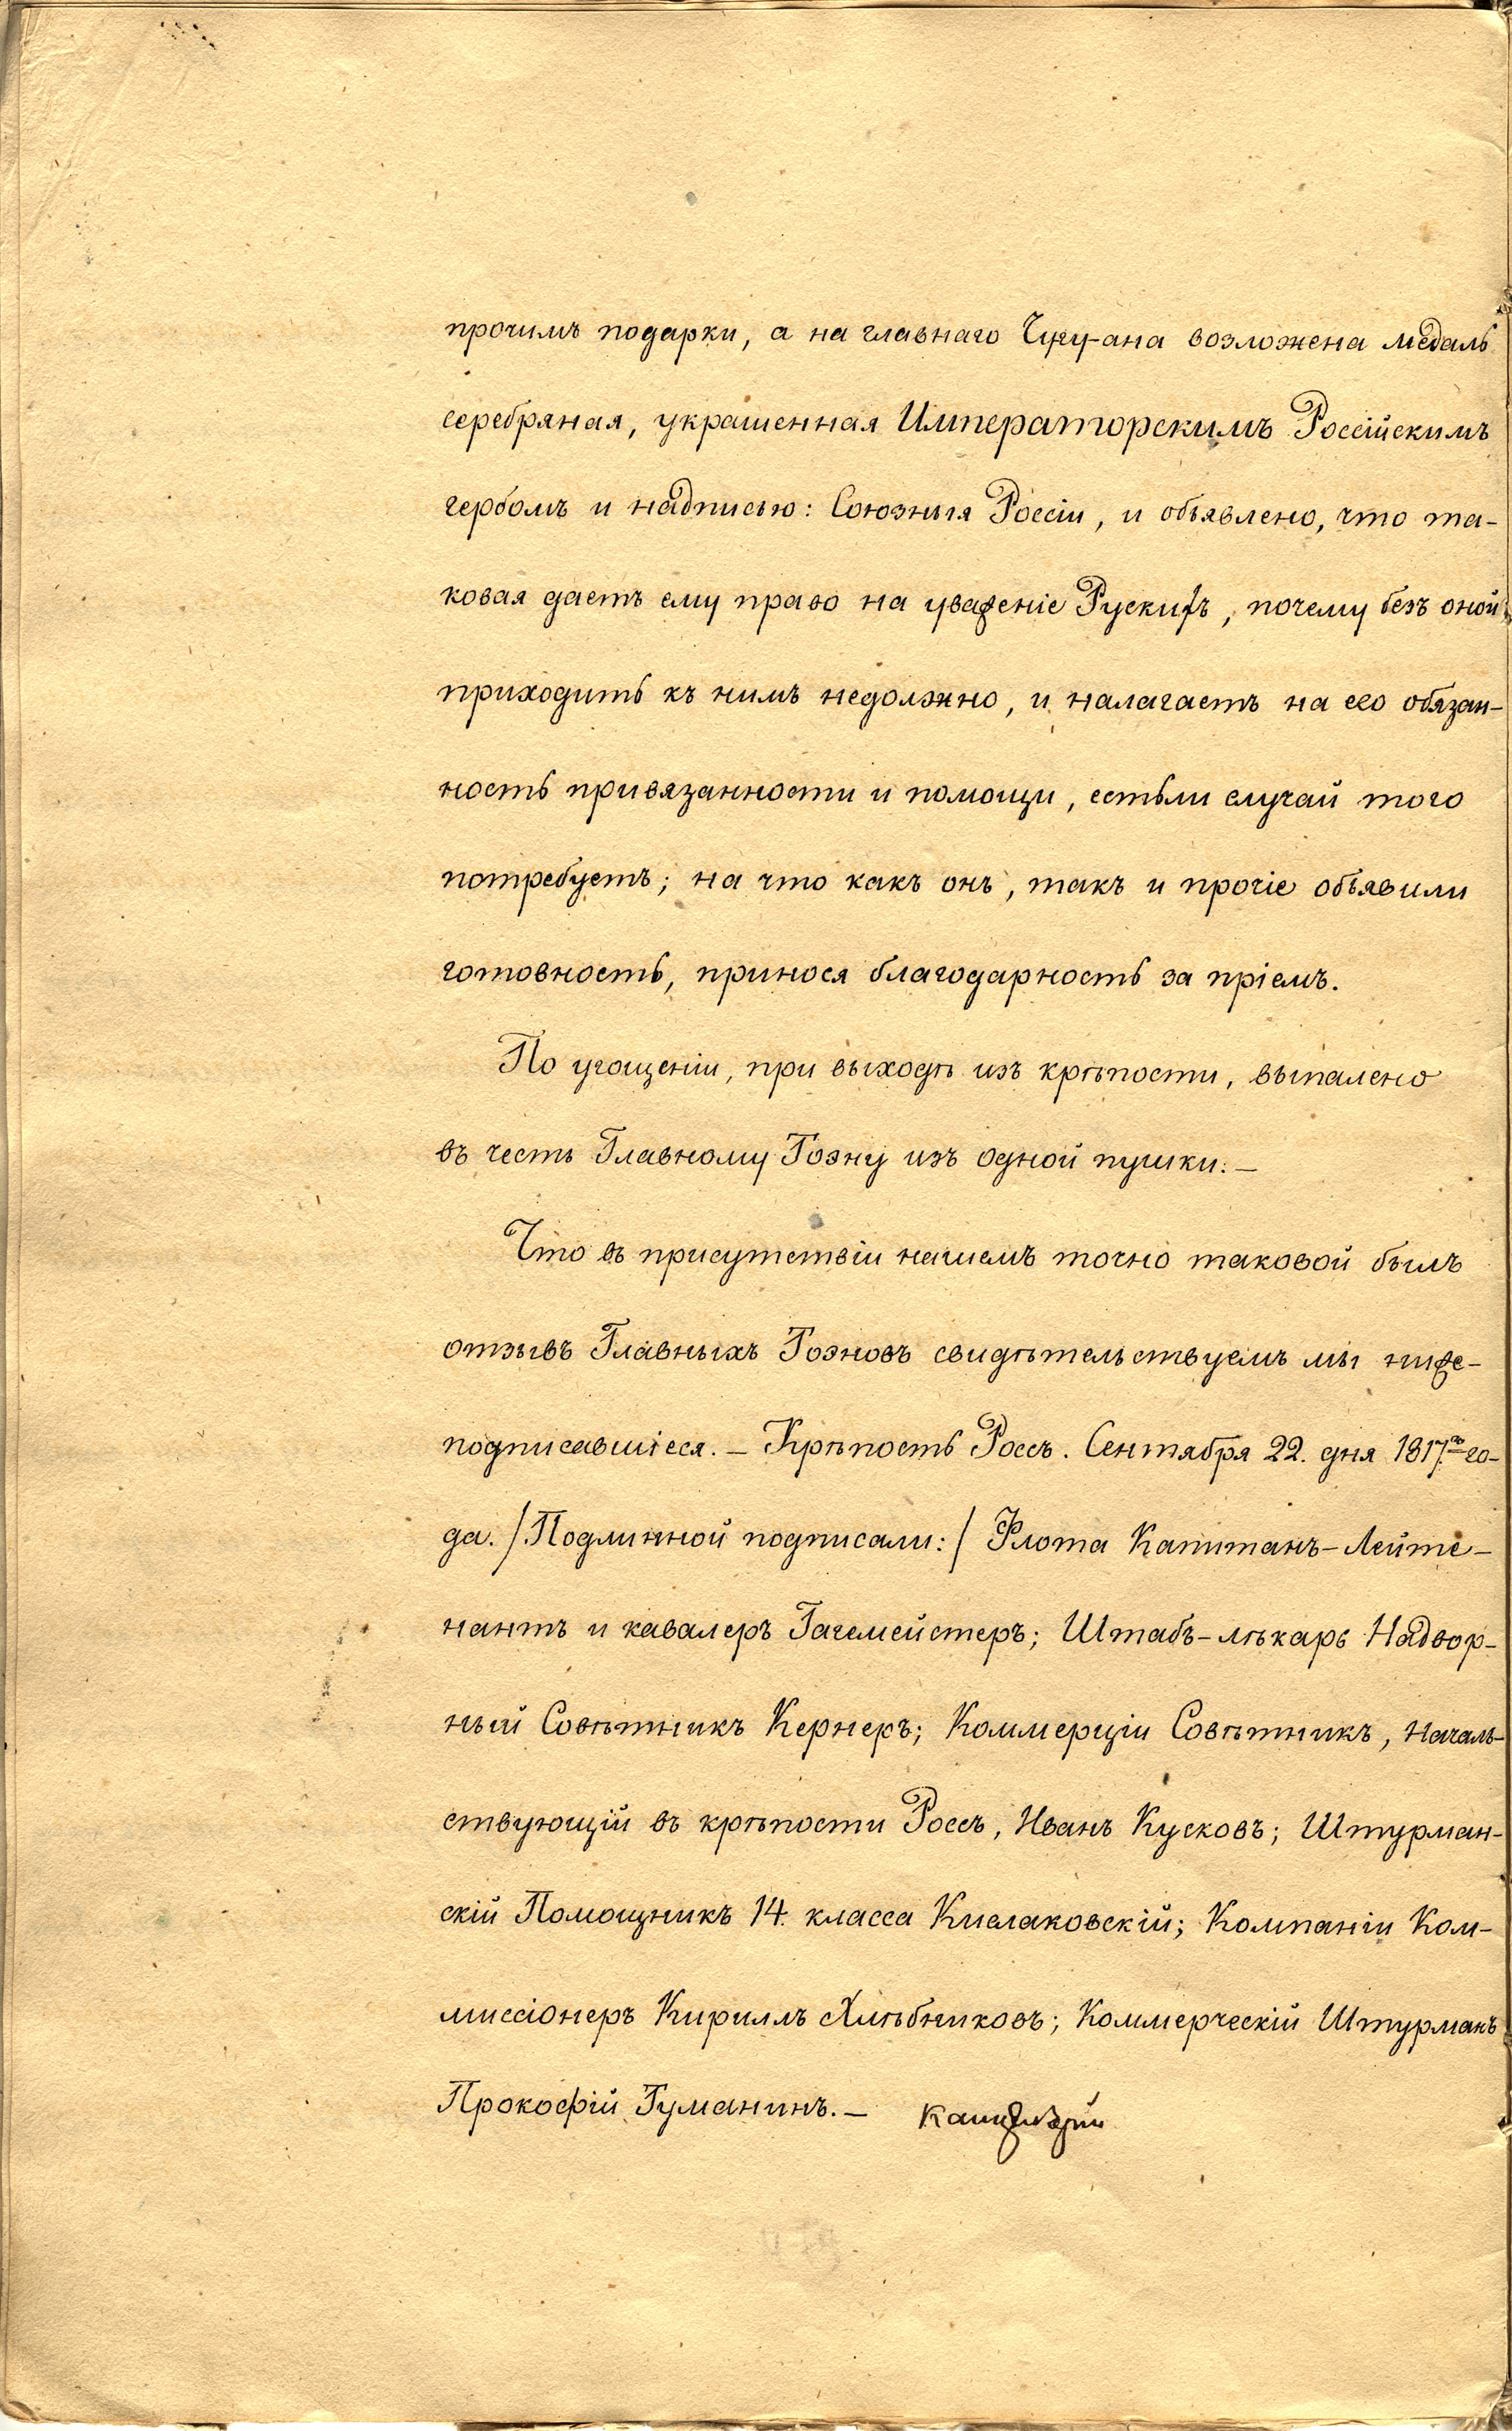 прочимъ подарки, а на главнаго Чугу-ана возложена медаль
серебряная, украшенная Императорскимъ Россійскимъ
гербомъ и надписью: Союзныя Россіи, и объявлено, что та-
ковая даетъ ему право на уваженіе Рускихъ, почему безъ оной
приходить къ нимъ недолжно, и налагаетъ на его обязан-
ность привязанности и помощи, естьли случай того
потребуетъ; на что какъ онъ, такъ и прочіе объявили
готовность, принося благодарность за пріемъ.
По угощеніи, при выходѣ изъ крѣпости, выпалено
въ честь Главному Тоэну изъ одной пушки.—
Что въ присутствіи нашемъ точно таковой былъ
отзывъ Главныхъ Тоэновъ свидѣтельствуемъ мы ниже-
подписавшіеся.— Крѣпость Россъ. Сентября 22. дня 1817.го го-
да. /.Подлинной подписали:/ Флота Капитанъ-Лейте-
нантъ и кавалеръ Гагемейстеръ; Штабъ-лѣкарь Надвор-
ный Совѣтникъ Кернеръ; Коммерціи Совѣтникъ, Началь-
ствующій въ крѣпости Россъ, Иванъ Кусковъ; Штурман-
скій Помощникъ 14. класса Кислаковскій; Компаніи Ком-
миссіонеръ Кириллъ Хлѣбниковъ; Коммерческій Штурманъ
Прокофій Туманинъ.—